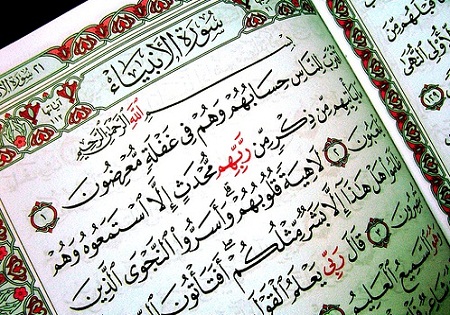 سُورَةُ الأَنبِيَاء
بسم الله الرحمن الرحيم
ٱقْتَرَبَ لِلنَّاسِ حِسَابُهُمْ وَهُمْ فِى غَفْلَةٍ مُّعْرِضُونَ ١
يَأْتِيهِم مِّن ذِكْرٍ مِّن رَّبِّهِم مُّحْدَثٍ إِلَّا ٱسْتَمَعُوهُ وَهُمْ
لَاهِيَةً قُلُوبُهُمْ وَأَسَرُّوا۟ ٱلنَّجْوَى ٱلَّذِينَ
هَلْ هَٰذَآ إِلَّا بَشَرٌ مِّثْلُكُمْ أَفَتَأْتُونَ
قَالَ رَبِّى يَعْلَمُ ٱلْقَوْلَ
ٱلسَّمِيعُ ٱلْعَلِيمُ